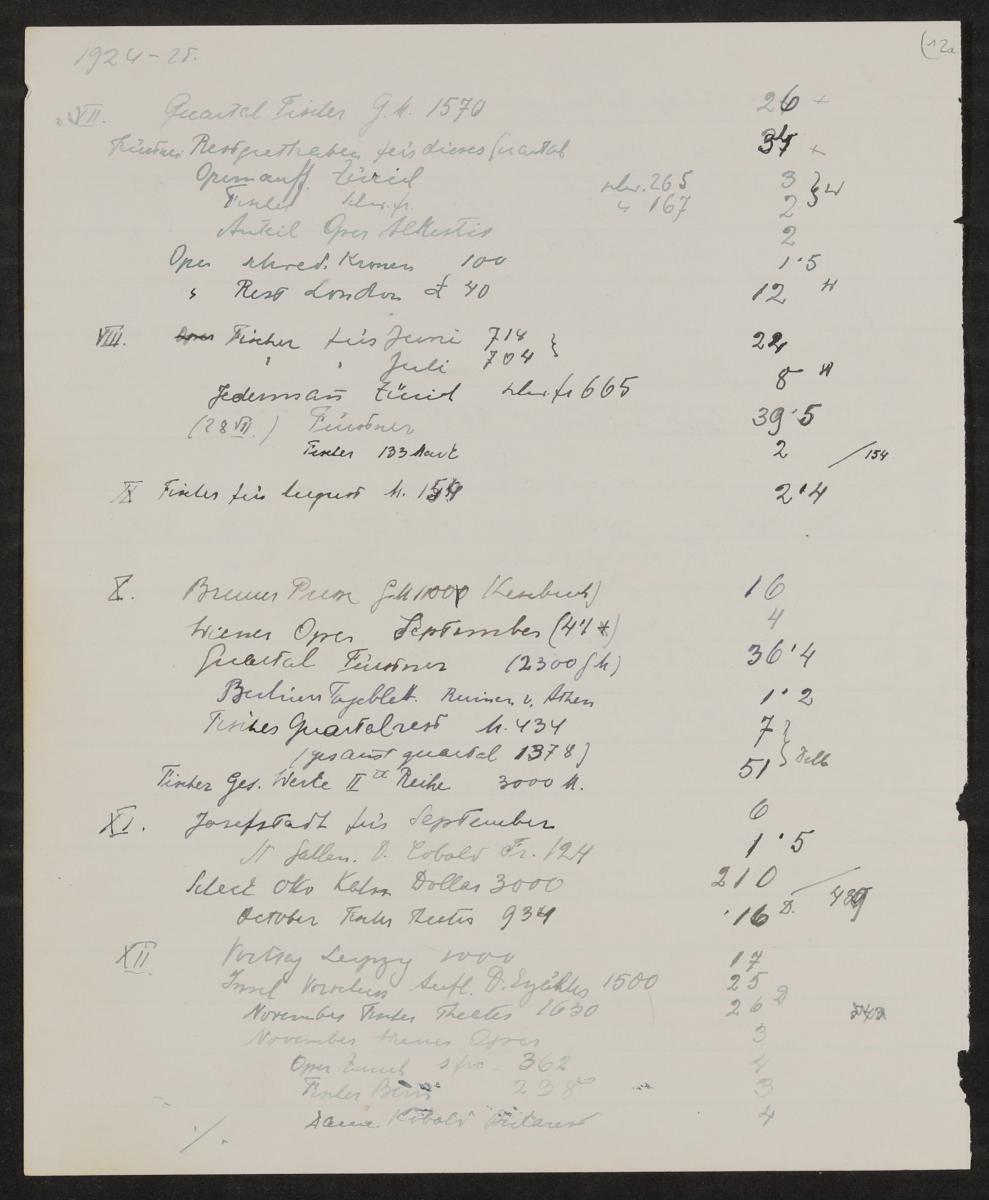 1924-25.
(12a
VII. Quartal Fischer G.M. 1570 26 +
Fürstner Restguthaben für dieses Quartal 37 +
Opernauff. Zürich schw. 265 3
Fischer schw. fr. " 167 2
Anteil Oper Alkestis 2
Oper schwed. Kronen 100 1·5
" Rest London £ 40 12
VIII. Fischer für Juni 714 22
" " Juli 704
Jedermann Zürich schw. fr 665 8
(28 VII.) Fürstner 39·5
Fischer 133 Mark 2 /154
IX Fischer für August M. 154 2·4
X. Bremer Presse G.M 1000 (Lesebuch) 16
Wiener Oper September (4% *) 4
Quartal Fürstner (2300 GM) 36·4
Berliner Tageblatt. Ruinen v. Athen 1·2
Fischer Quartalrest M. 434 7
(gesamt quartal 1378)
Fischer Ges. Werke II te Reihe 3000 M. 51
XI. Josefstadt für September 6
St Gallen. D. Cobold Fr. 124 1·5
Scheck Otto Kahn Dollar 3000 210
October Fischer Theater 934 16 D.
XII Vortrag Leipzig 1000 17
Insel Vorschuss Aufl. D. Erzähler 1500 25
November Fischer Theater 1630 26 D
November Wiener Oper 3
Oper Zürich sfrc. 362 4
Fischer Bern 238 3
Dame Kobold Bukarest 4
./.